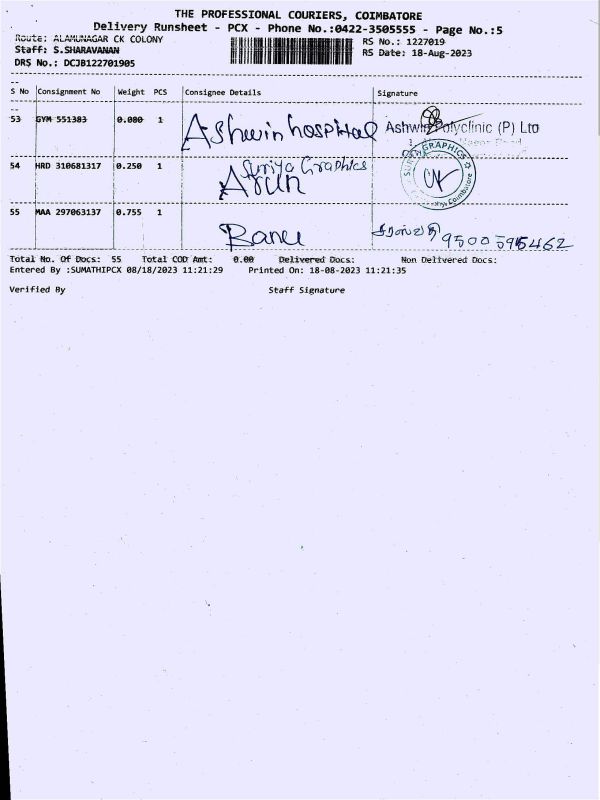 THE PROFESSIONAL COURIERS, COIMBATORE
Delivery Runsheet - PCX - Phone No.:0422-3505555 - Page No.:5
Route: ALAMUNAGAR CK COLONY
RS No.: 1227019
Staff: S.SHARAVANAN
RS Date: 18-Aug-2023
DRS No.: DCJB122701905
S No Consignment No Weight PCS Consignee Details Signature
53 GYM 551383 0.080 1 Ashwin hospital Ashwin Polyclinic (P) Ltd
54 HRD 310681317 0.250 1 Suriya Graphics
Arun
GRAPHICS
Coimbatore
55 MAA 297063137 0.755 1 Banu
Total No. Of Docs: 55 Total COD Amt: 0.00 Delivered Docs: Non Delivered Docs:
Entered By :SUMATHIPCX 08/18/2023 11:21:29 Printed On: 18-08-2023 11:21:35
Verified By Staff Signature